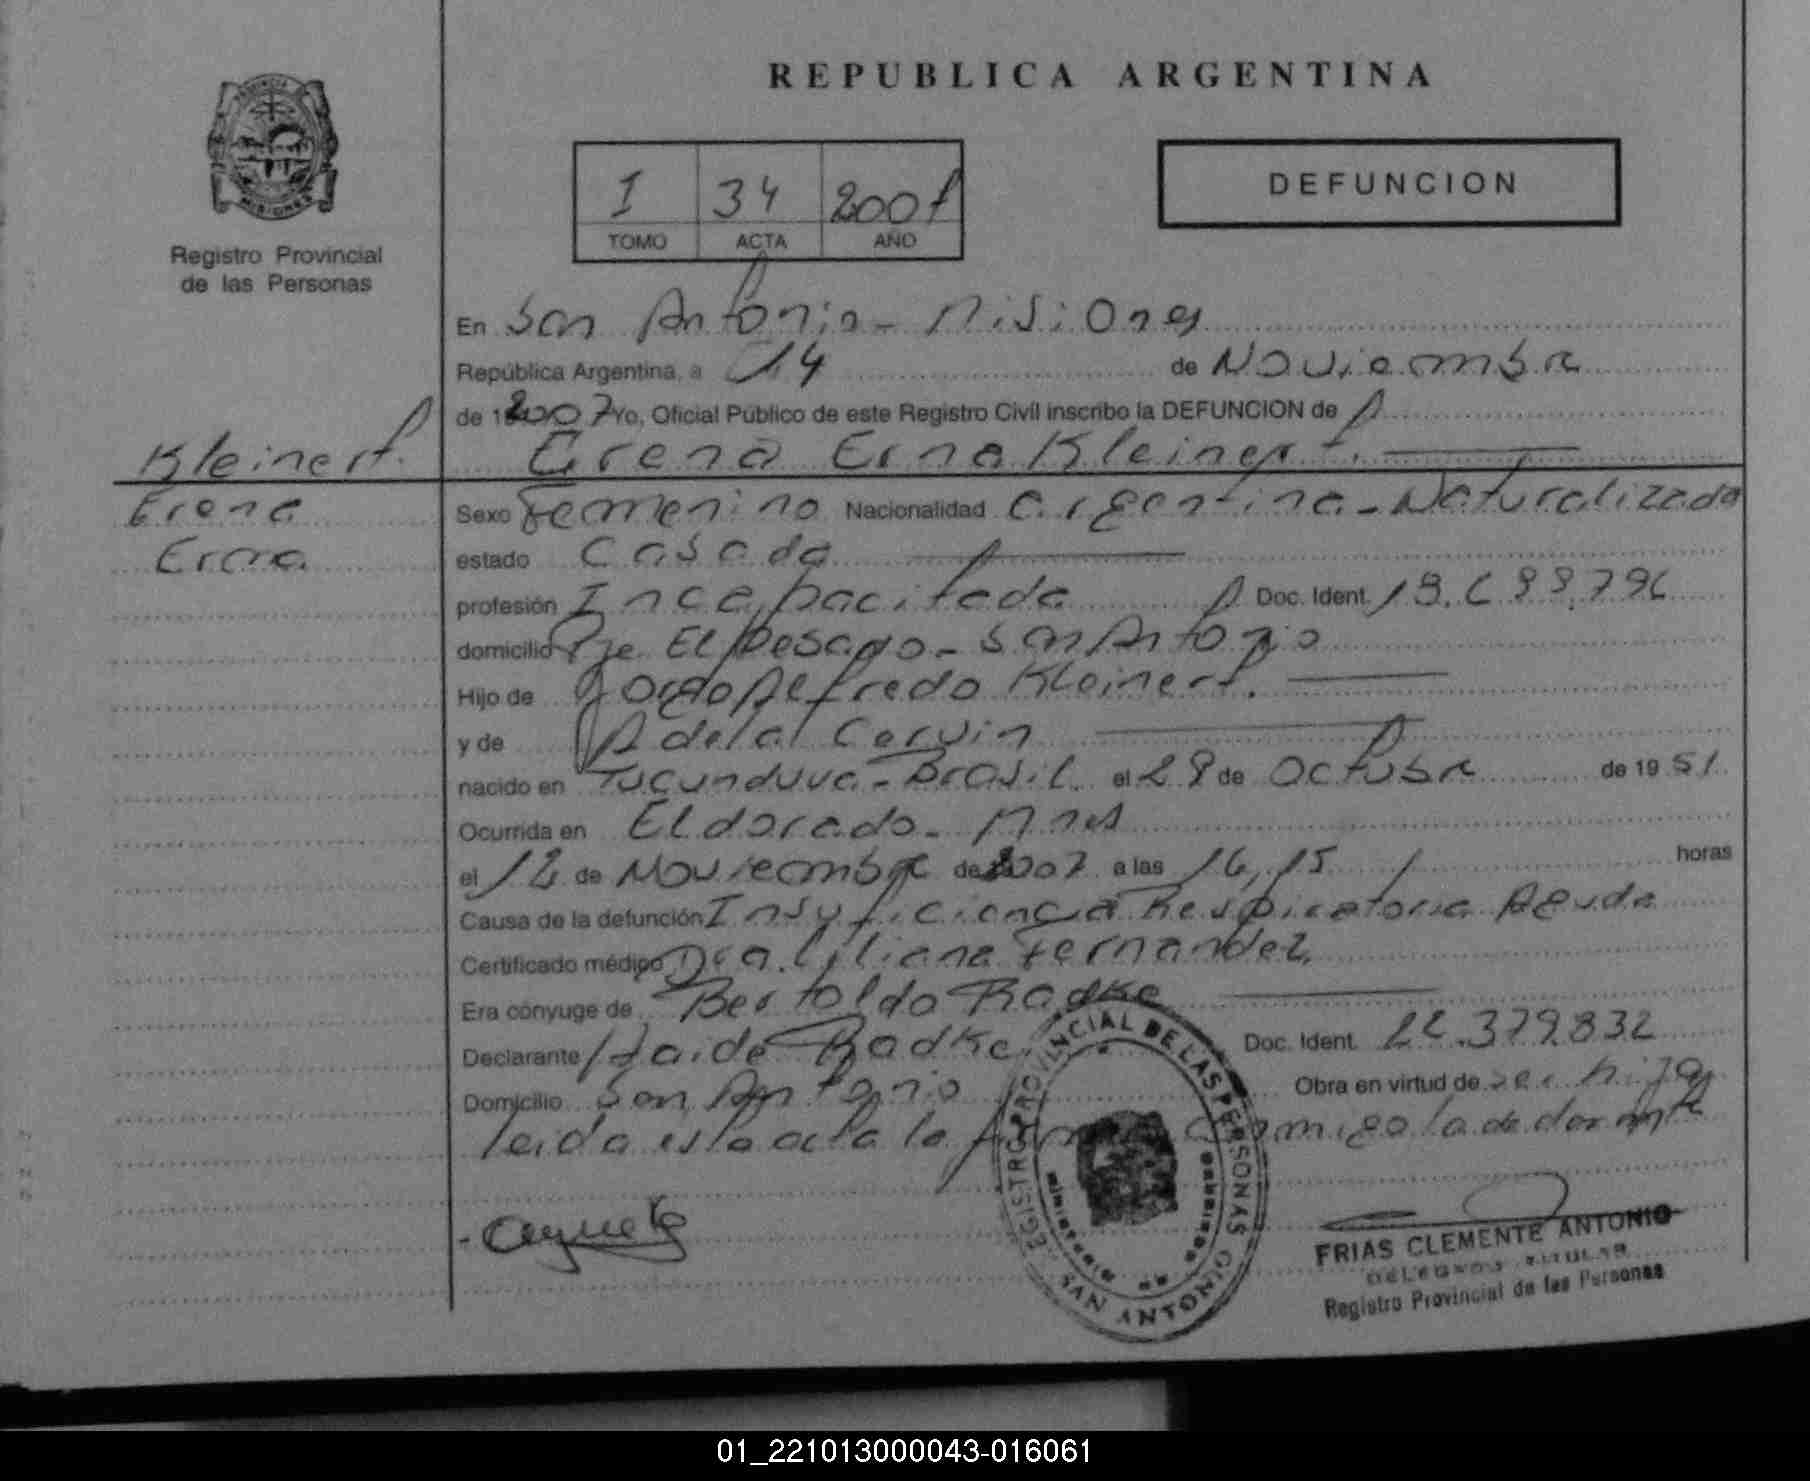 REPUBLICA ARGENTINA
PROVINCIA DE
MISIONES
Registro Provincial
de las Personas
I 34 2007
TOMO ACTA AÑO
DEFUNCION
En San Antonio - Misiones
República Argentina, a 14 de Noviembre
de 2007 Yo, Oficial Público de este Registro Civil inscribo la DEFUNCION de
Kleinert. Erena Erna Kleinert.
Erena
Erna
Sexo Femenino Nacionalidad Argentina - Naturalizada
estado Casada
profesión Incapacitada Doc. Ident.
domicilio Pje El Pesado - San Antonio
Hijo de Jorge Alfredo Kleinert.
y de Adela Cervin
nacido en Tucunduva - Brasil el 28 de Octubre de 1951
Ocurrida en Eldorado - Mnes
el 12 de Noviembre de 2007 a las 16,15 horas
Causa de la defunción Insuficiencia Respiratoria Aguda
Certificado médico Dra. Liliana Fernandez
Era cónyuge de Bertoldo Radke
Declarante Haide Radke Doc. Ident. 22.379.832
Domicilio San Antonio Obra en virtud de ser hija
leida esta acta la firma conmigo la declarante
REGISTRO PROVINCIAL DE LAS PERSONAS
SAN ANTONIO
FRIAS CLEMENTE ANTONIO
DELEGADO TITULAR
Registro Provincial de las Personas
01_221013000043-016061